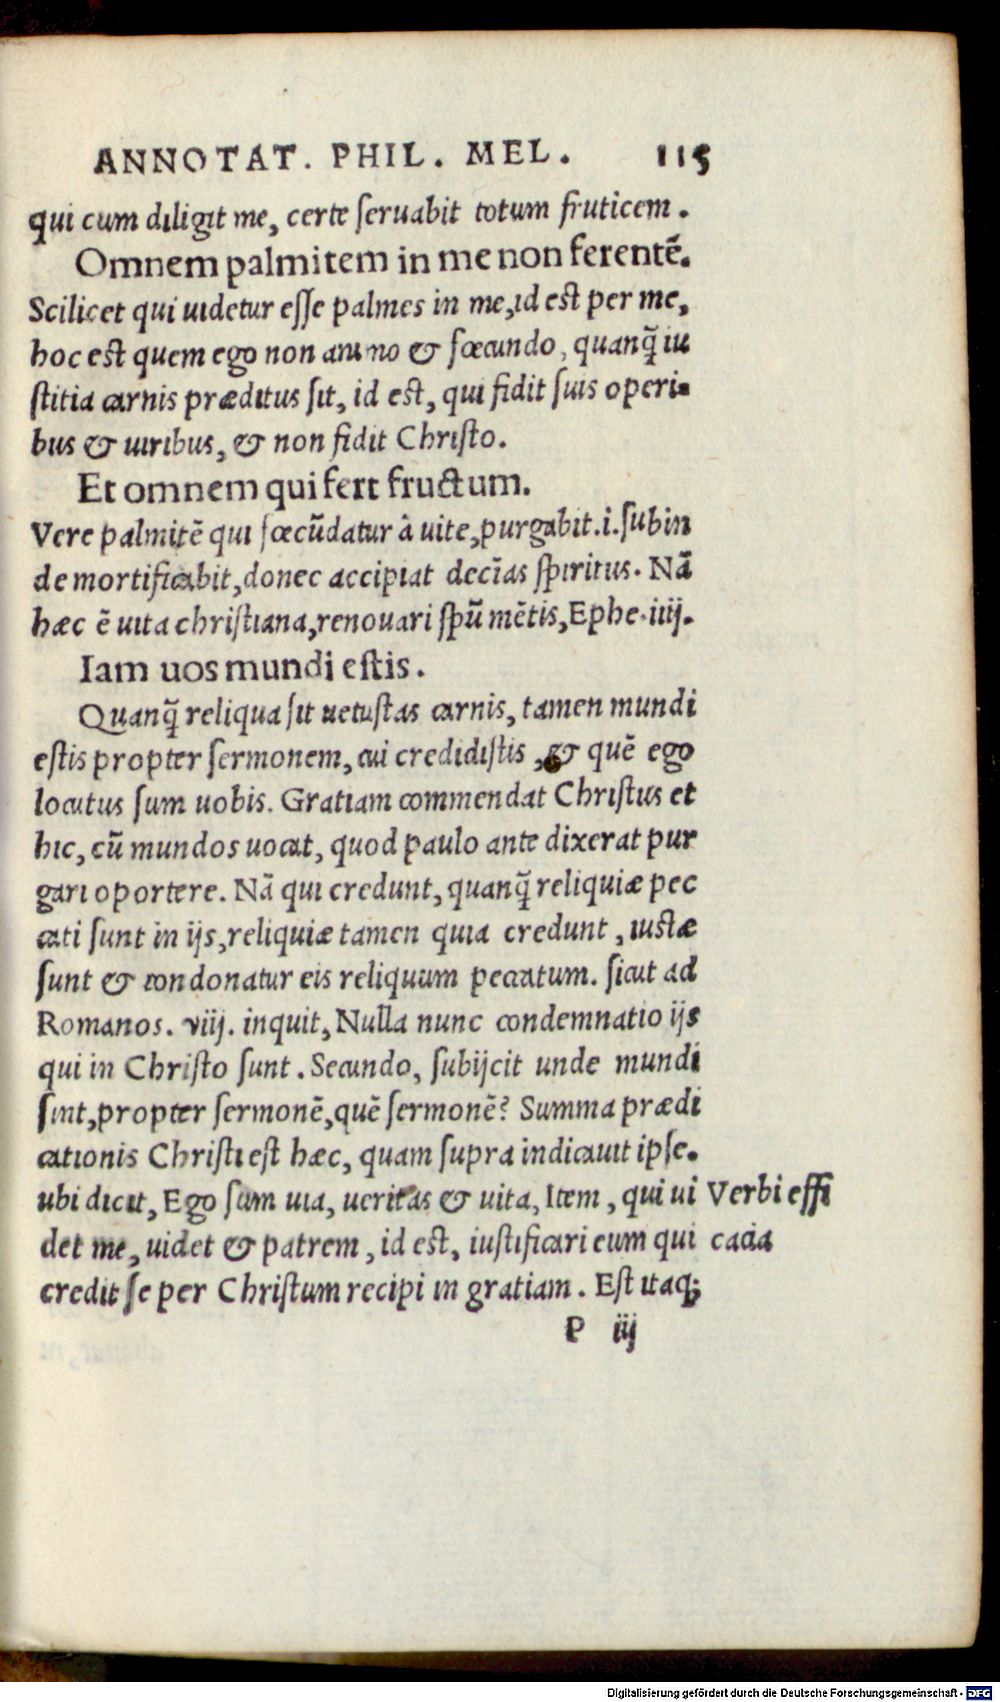 ANNOTAT. PHIL. MEL. 115
qui cum diligit me, certe ſeruabit totum fruticem.
Omnem palmitem in me non ferentē.
Scilicet qui uidetur eſſe palmes in me, id est per me,
hoc est quem ego non animo & fœcundo, quanq̃ iu
ſtitia carnis præditus ſit, id est, qui fidit ſuis operi-
bus & uiribus, & non fidit Chriſto.
Et omnem qui fert fructum.
Vere palmitē qui fœcūdatur à uite, purgabit.i.ſubin
de mortificabit, donec accipiat decīas ſpiritus. Nā
hæc ē uita chriſtiana, renouari ſpū mētis, Ephe.iiij.
Iam uos mundi eſtis.
Quanq̃ reliqua ſit uetuſtas carnis, tamen mundi
eſtis propter ſermonem, cui credidiſtis, & quē ego
locutus ſum uobis. Gratiam commendat Chriſtus et
hic, cū mundos uocat, quod paulo ante dixerat pur
gari oportere. Nā qui credunt, quanq̃ reliquiæ pec
cati ſunt in ijs, reliquiæ tamen quia credunt, iuſtæ
ſunt & condonatur eis reliquum peccatum. ſicut ad
Romanos. viij. inquit, Nulla nunc condemnatio ijs
qui in Chriſto ſunt. Secundo, ſubijcit unde mundi
ſint, propter ſermonē, quē ſermonē? Summa prædi
cationis Chriſti eſt hæc, quam ſupra indicauit ipſe.
ubi dicit, Ego ſum uia, ueritas & uita, Item, qui ui
det me, uidet & patrem, id est, iuſtificari eum qui
credit ſe per Chriſtum recipi in gratiam. Est itaq;
Verbi effi
cacia
P iij
Digitalisierung gefördert durch die Deutsche Forschungsgemeinschaft - DFG